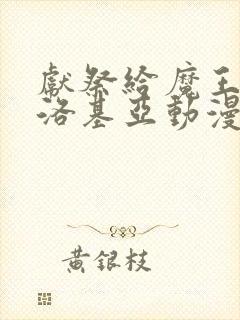 獻祭給魔王
洛基亞動漫
黃銀枝